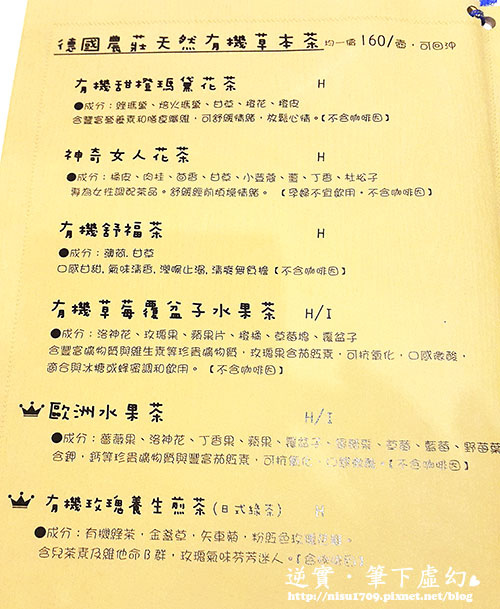 德國農莊天然有機草本茶 均一價160/壺,可回沖
有機甜橙瑪黛花茶 H
神奇女人花茶 H
●成分:橘皮、肉桂、茴香、甘草、小荳蔻、薑、丁香、杜松子
專為女性調配茶品。舒緩經前煩燥情緒。【孕婦不宜飲用,不含咖啡因】
有機舒福茶 H
●成分:薄荷.甘草
口感甘甜,氣味清香,潤喉止渴,清爽無負擔【不含咖啡因】
有機草莓覆盆子水果茶 H/I
●成分:洛神花、玫瑰果、蘋果片、橙橘、草莓塊、覆盆子
含豐富礦物質與維生素等珍貴礦物質,玫瑰果含茄紅素,可抗氧化,口感微酸,
適合與冰糖或蜂蜜調和飲用。【不含咖啡因】
歐洲水果茶 H/I
●成分:薔薇果、洛神花、丁香果、蘋果、覆盆子、草莓、藍莓、野莓葉
含鉀,鈣等珍貴礦物質與豐富茄紅素,可抗氧化,【不含咖啡因】
有機玫瑰養生煎茶(日式綠茶) H
●成分:有機綠茶,金盞草,矢車菊,粉紅色玫瑰
含兒茶素及維他命B群,玫瑰氣味芬芳迷人。【含咖啡因】
逆實・筆下虛幻
http://nisu1709.pixnet.net/blog